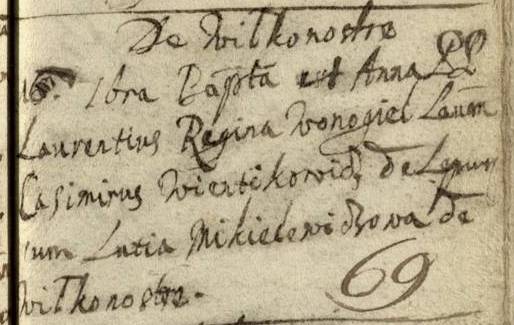 De Wilkonostre
16. 9bra Bapta est Anna PP
Laurentius Regina Wonogiel Laum
Casimirus Wientikowidz de Lepun
rum Lutia Mikielewidzowa de
Wilkonostre.
69